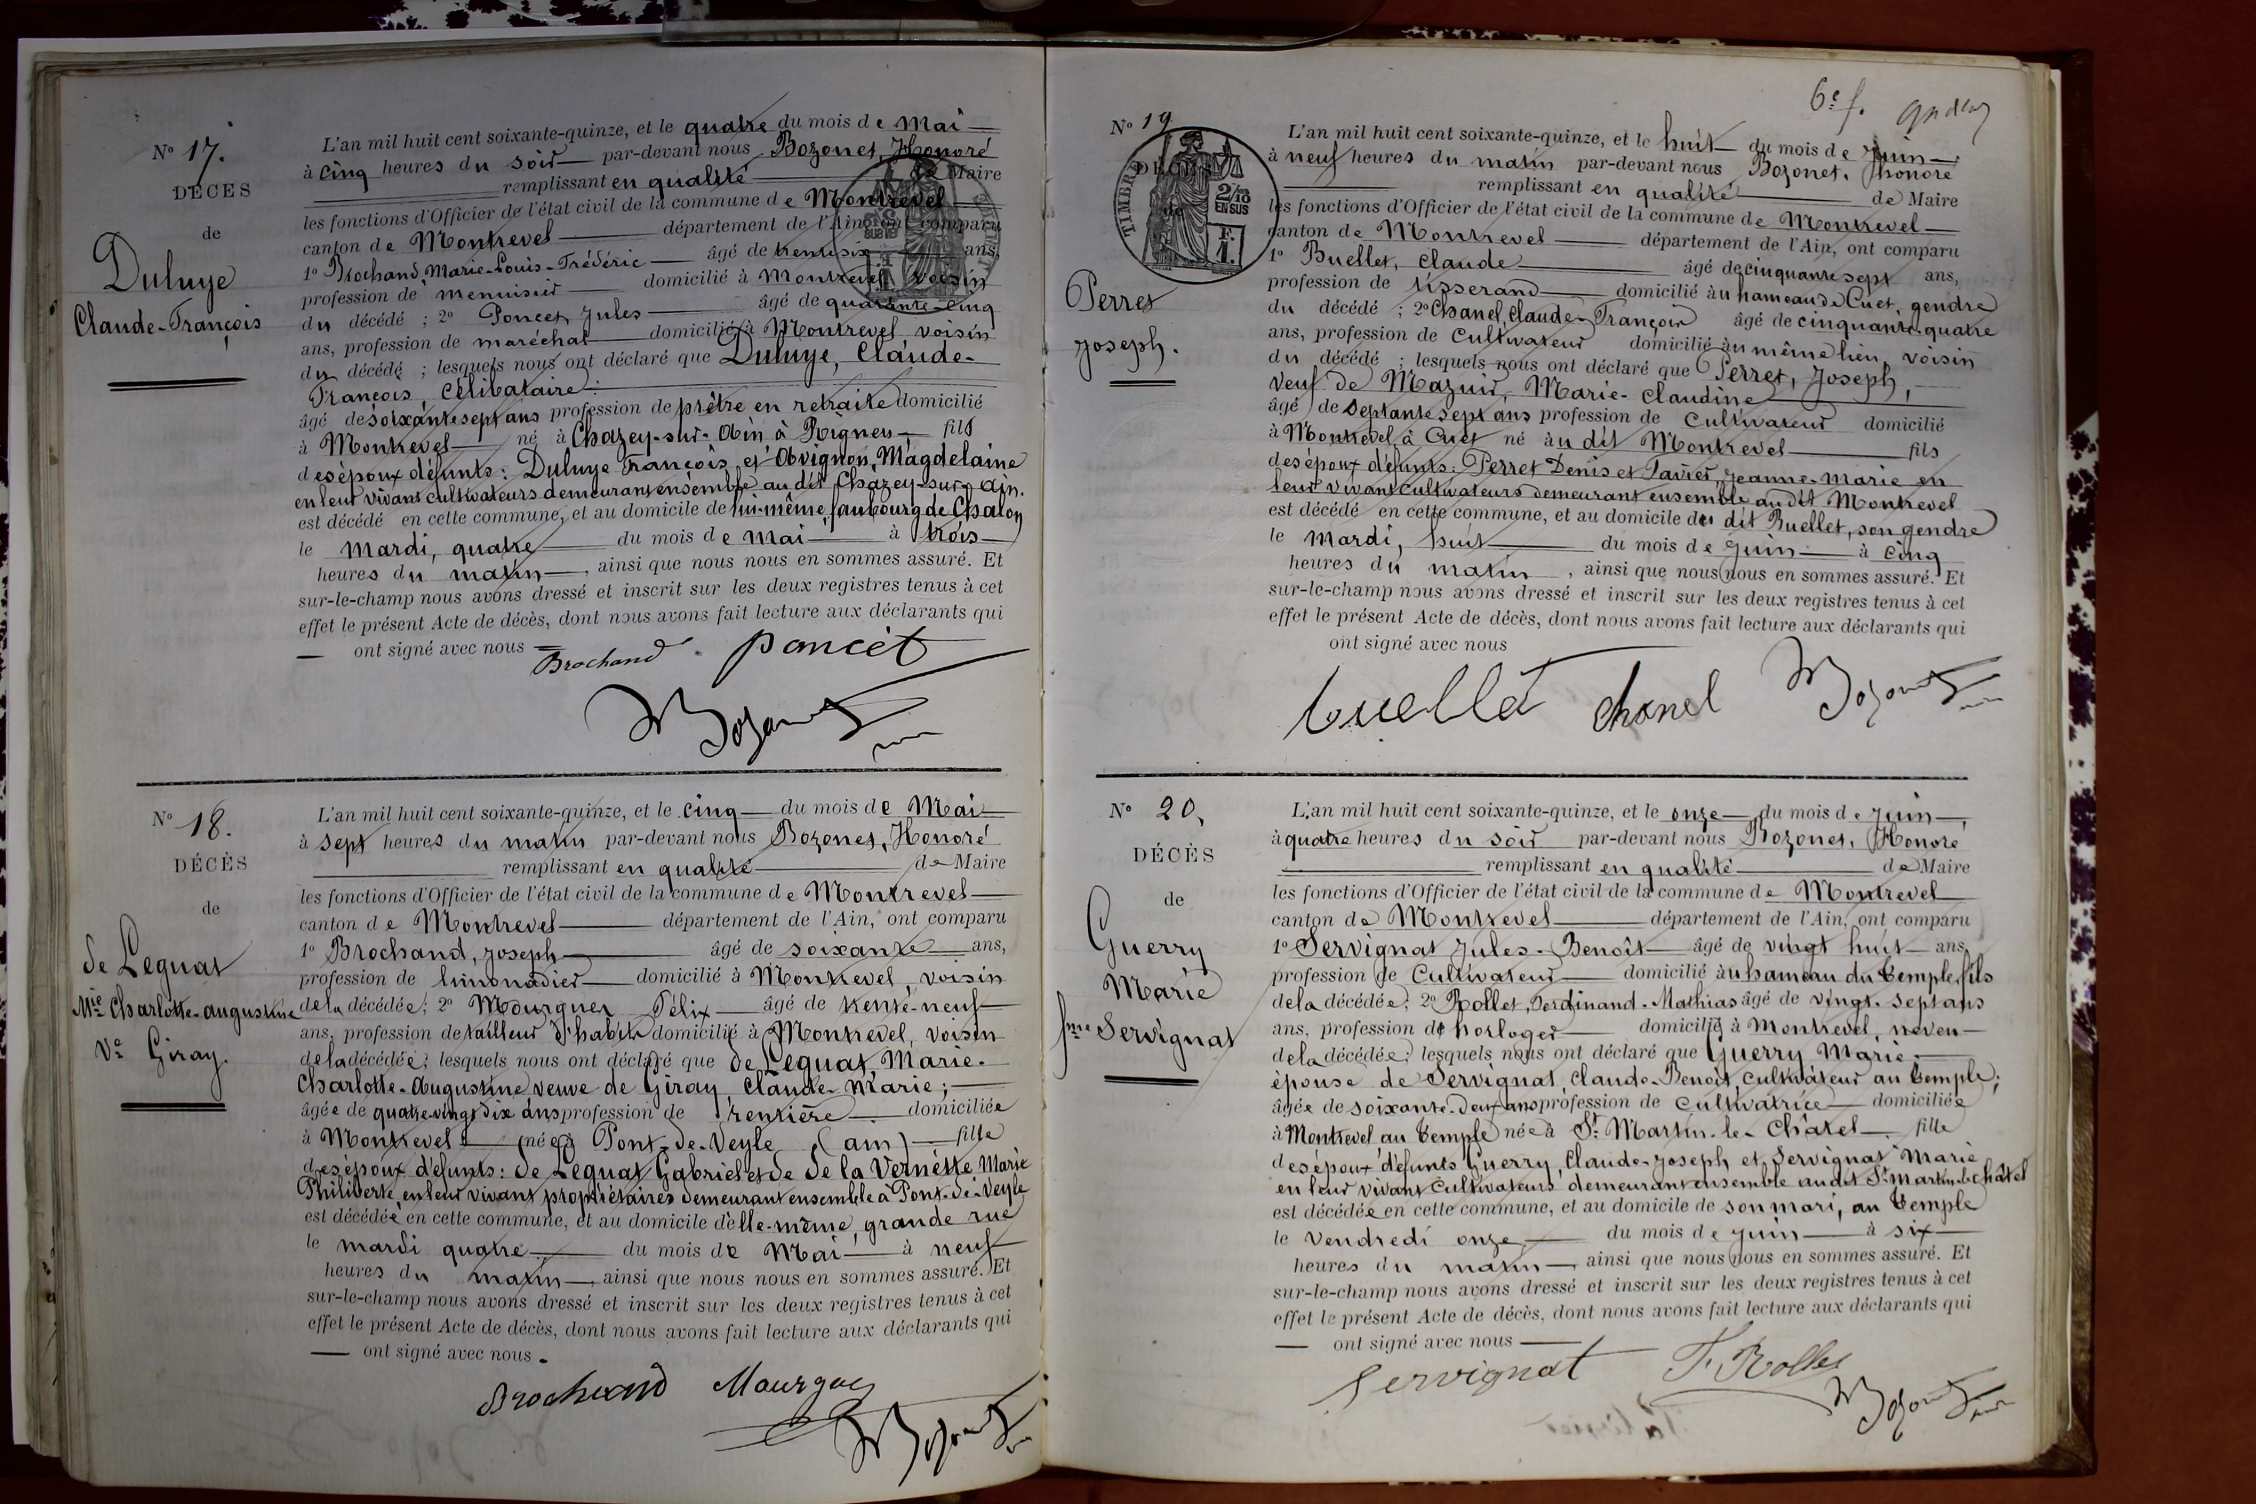 N° 17.
DÉCÈS
de
Duluye
Claude-François
L'an mil huit cent soixante-quinze, et le quatre du mois de Mai
à cinq heures du soir par-devant nous Bozonet, Honoré
remplissant en qualité de Maire
les fonctions d'Officier de l'état civil de la commune de Montrevel
canton de Montrevel département de l'Ain, ont comparu
1° Brochand, Marie-Louis-Frédéric âgé de trente six ans,
profession de menuisier domicilié à Montrevel, voisin
du décédé ; 2° Poncet, Jules âgé de quarante-cinq
ans, profession de maréchal domicilié à Montrevel, voisin
du décédé ; lesquels nous ont déclaré que Duluye, Claude-
François, célibataire :
âgé de soixante sept ans profession de prêtre en retraite domicilié
à Montrevel né à Chazey-sur-Ain à Rigneu fils
des époux défunts : Duluye François et Obvignon, Magdelaine
en leur vivant cultivateurs demeurant ensemble au dit Chazey-sur-Ain.
est décédé en cette commune, et au domicile de lui-même, faubourg de Chalon
le mardi, quatre du mois de mai à trois
heures du matin, ainsi que nous nous en sommes assuré. Et
sur-le-champ nous avons dressé et inscrit sur les deux registres tenus à cet
effet le présent Acte de décès, dont nous avons fait lecture aux déclarants qui
ont signé avec nous
Brochand Poncet
Bozonet
N° 18.
DÉCÈS
de
de Leguat
Mie Charlotte-augustine
Ve Giray.
L'an mil huit cent soixante-quinze, et le cinq du mois de Mai
à sept heures du matin par-devant nous Bozonet, Honoré
remplissant en qualité de Maire
les fonctions d'Officier de l'état civil de la commune de Montrevel
canton de Montrevel département de l'Ain, ont comparu
1° Brochand, Joseph âgé de soixante ans,
profession de limonadier domicilié à Montrevel, voisin
de la décédée ; 2° Mourguer Félix âgé de trente-neuf
ans, profession de tailleur d'habits domicilié à Montrevel, voisin
de la décédée ; lesquels nous ont déclaré que de Leguat, Marie-
Charlotte-Augustine veuve de Giray, Claude-Marie ;
âgée de quatre-vingt dix ans profession de rentière domiciliée
à Montrevel née à Pont-de-Veyle (ain) fille
des époux défunts : de Leguat Gabriel et de de la Vernétte Marie
Philiberte, en leur vivant propriétaires demeurant ensemble à Pont-de-Veyle
est décédée en cette commune, et au domicile d'elle-même, grande rue
le mardi quatre du mois de Mai à neuf
heures du matin, ainsi que nous nous en sommes assuré. Et
sur-le-champ nous avons dressé et inscrit sur les deux registres tenus à cet
effet le présent Acte de décès, dont nous avons fait lecture aux déclarants qui
ont signé avec nous.
Brochand Mourguer
Bozonet
6e f.
N° 19
DÉCÈS
de
TIMBRE
2/10
EN SUS
F.
1.
Perret
Joseph.
L'an mil huit cent soixante-quinze, et le huit du mois de Juin
à neuf heures du matin par-devant nous Bozonet, Honoré
remplissant en qualité de Maire
les fonctions d'Officier de l'état civil de la commune de Montrevel
canton de Montrevel département de l'Ain, ont comparu
1° Buellet, Claude âgé de cinquante sept ans,
profession de tisserand domicilié au hameau de Cuet, gendre
du décédé ; 2° Chanel, Claude-François âgé de cinquante quatre
ans, profession de cultivateur domicilié au même lieu, voisin
du décédé ; lesquels nous ont déclaré que Perret, Joseph,
veuf de Mazuir, Marie-Claudine
âgé de septante sept ans profession de cultivateur domicilié
à Montrevel, à Cuet né au dit Montrevel fils
des époux défunts : Perret Denis et Tavier, Jeanne-Marie en
leur vivant cultivateurs demeurant ensemble au dit Montrevel
est décédé en cette commune, et au domicile du dit Buellet, son gendre
le mardi, huit du mois de juin à cinq
heures du matin, ainsi que nous nous en sommes assuré. Et
sur-le-champ nous avons dressé et inscrit sur les deux registres tenus à cet
effet le présent Acte de décès, dont nous avons fait lecture aux déclarants qui
ont signé avec nous
buellet chanel Bozonet
N° 20.
DÉCÈS
de
Guerry
Marie
fme Servignat
L'an mil huit cent soixante-quinze, et le onze du mois de Juin,
à quatre heures du soir par-devant nous Bozonet, Honoré
remplissant en qualité de Maire
les fonctions d'Officier de l'état civil de la commune de Montrevel
canton de Montrevel département de l'Ain, ont comparu
1° Servignat Jules-Benoît âgé de vingt huit ans,
profession de cultivateur domicilié au hameau du temple, fils
de la décédée ; 2° Rollet, Ferdinand-Mathias âgé de vingt-sept ans
ans, profession de horloger domicilié à Montrevel, neveu
de la décédée ; lesquels nous ont déclaré que Guerry Marie
épouse de Servignat, Claude-Benoît, cultivateur au temple ;
âgée de soixante-deux ans profession de cultivatrice domiciliée
à Montrevel au temple née à St Martin-le-Châtel fille
des époux défunts Guerry, Claude-Joseph et Servignat Marie
en leur vivant cultivateurs demeurant ensemble au dit St Martin-le-châtel
est décédée en cette commune, et au domicile de son mari, au temple
le vendredi onze du mois de juin à six
heures du matin, ainsi que nous nous en sommes assuré. Et
sur-le-champ nous avons dressé et inscrit sur les deux registres tenus à cet
effet le présent Acte de décès, dont nous avons fait lecture aux déclarants qui
ont signé avec nous
Servignat F. Rollet
Bozonet